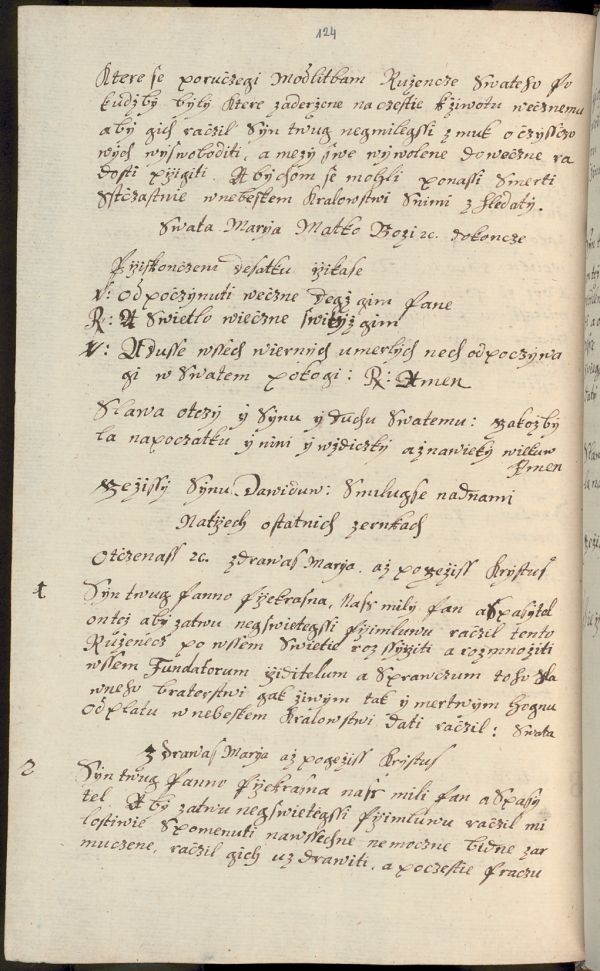 124
Ktere se poruczegi Modlitbam Ruzencze Swateho Po
kudzby byly ktere zaderzene na czestie k ziwotu wecznemu
aby gich raczil Syn twug negmilegssi z muk oczysstczo
wych wyswoboditi, a mezy swe wywolene do weczne ra
dosti przigiti. Abychom se mohli ponassi Smerti
Sstczastnie w nebeskem Kralowstwi S nimi z hledaty.
Swata Maryja Matko Bozi ꝛc. dokoncze
Przi skonczeni desatku rzikase
V: Odpoczynuti weczne degz gim Pane
R: A Swietlo wieczne switiz gim
V: A dusse wssech wiernych umerlych nech odpoczywa
gi w Swatem pokogi: R: Amen
Slawa otczy y Synu y Duchu Swatemu: gakozby
la napoczatku y nini y wzdiczky az nawieky wiekuw
Amen
Gezissy Synu Dawiduw: Smilugse nad nami
Na trzech ostatnich zernkach
Otczenass ꝛc. zdrawas Marya, az po Geziss Krystus
1 Syn twug Panno Przekrasna, Nass mily Pan a Spasytel
on tez aby zatwu negswietegssi Przimluwu raczil tento
Ruzenecz po wssem Swietie rozssyrziti a rozmnoziti
wssem Fundatorum rziditelum a Sprawczum toho sla
wneho bratorstwi gak ziwym tak y mertwym hognu
odplatu w nebeskem Kralowstwi dati raczil: Swata
Zdrawas Marya az po geziss Krystus
2 Syn twug Panno Przekrasna nass mili Pan a Spasy
tel. Aby zatwu negswietegssi Przimluwu raczil mi
lostiwie Spomenuti nawssechne nemoczne bidne zar
muczene, raczil gich uzdrawiti, a poczestie Praczu